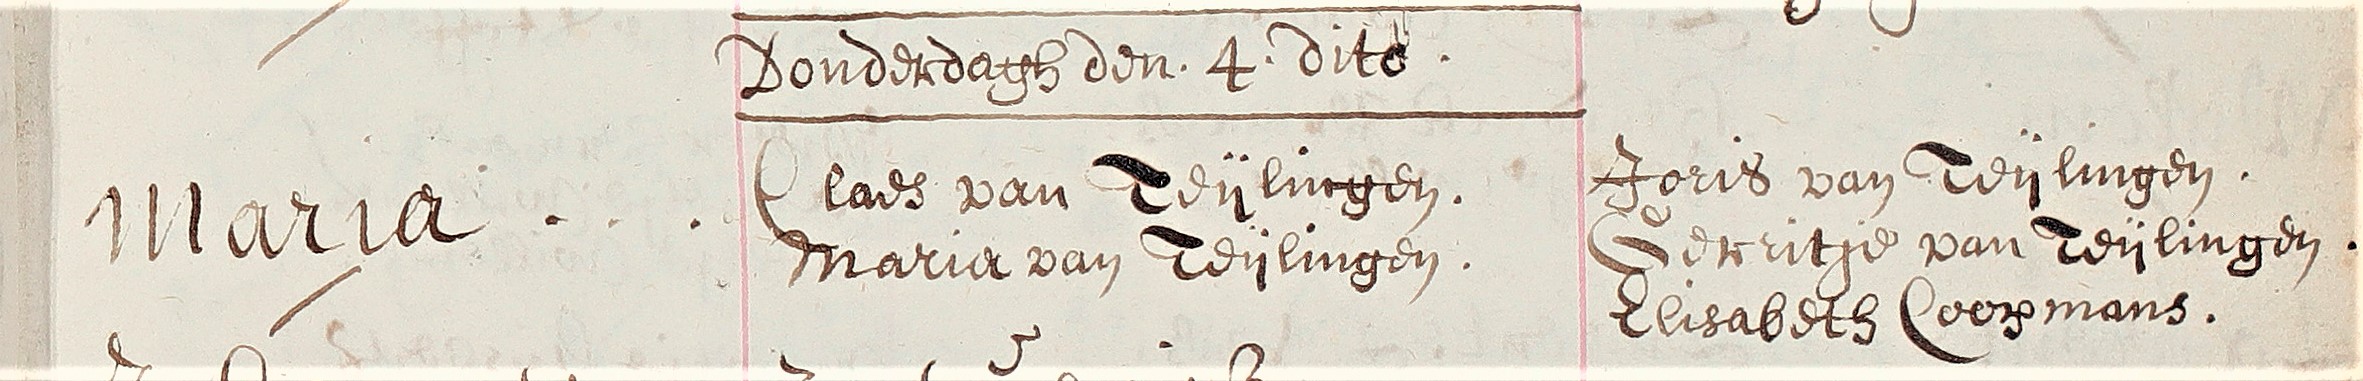 Donderdagh den. 4. dito.
Maria . . .
Claes van Teijlingen.
Maria van Teijlingen.
Joris van Teijlingen.
Gerritje van Teijlingen.
Elisabeth Coopmans.